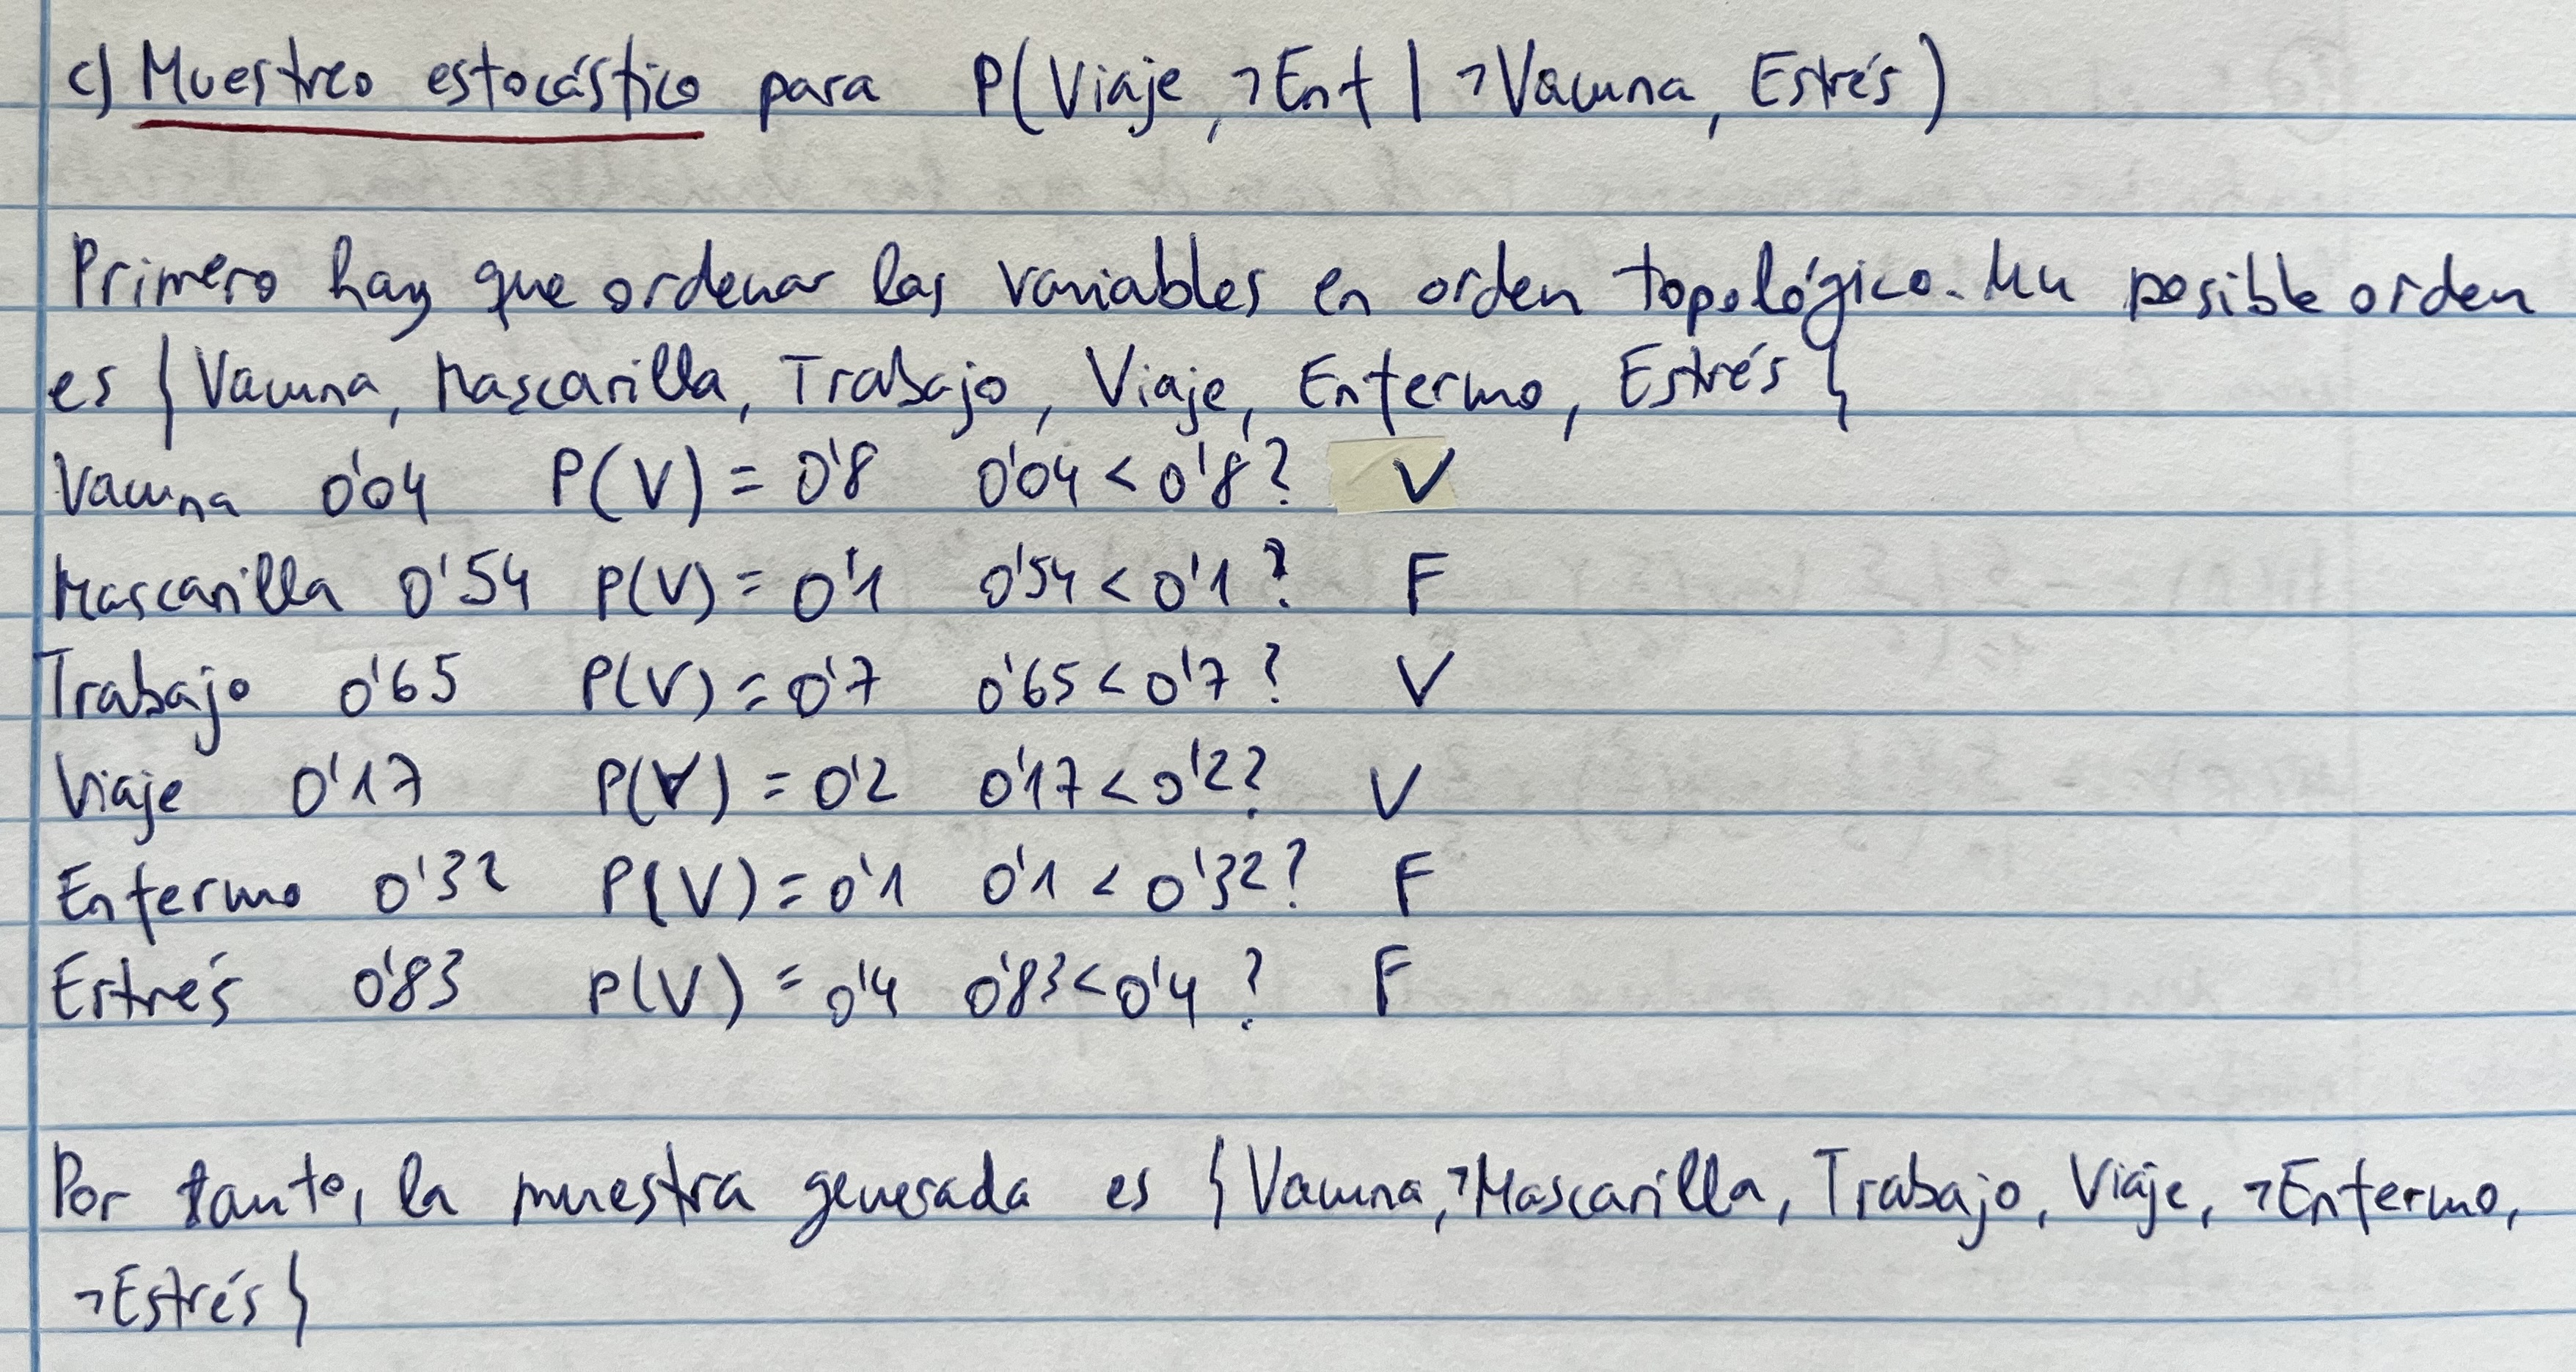 c) Muestreo estocástico para P(Viaje, ¬Enf | ¬Vacuna, Estrés)
Primero hay que ordenar las variables en orden topológico. Un posible orden
es { Vacuna, Mascarilla, Trabajo, Viaje, Enfermo, Estrés }
Vacuna 0'04 P(V) = 0'8 0'04 < 0'8? V
Mascarilla 0'54 P(V) = 0'1 0'54 < 0'1? F
Trabajo 0'65 P(V) = 0'7 0'65 < 0'7? V
Viaje 0'17 P(V) = 0'2 0'17 < 0'2? V
Enfermo 0'32 P(V) = 0'1 0'1 < 0'32? F
Estrés 0'83 P(V) = 0'4 0'83 < 0'4? F
Por tanto, la muestra generada es { Vacuna, ¬Mascarilla, Trabajo, Viaje, ¬Enfermo,
¬Estrés }